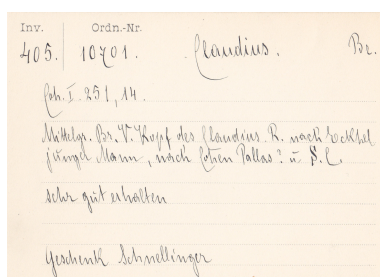 Inv. Ordn.-Nr.
405. 10701. Claudius. Br.
Coh. I. 251, 14.
Mittelgr. Br. V. Kopf des Claudius R. nach Eckhel
junger Mann, nach Cohen Pallas? u S. C.
sehr gut erhalten
Geschenk Schnellinger